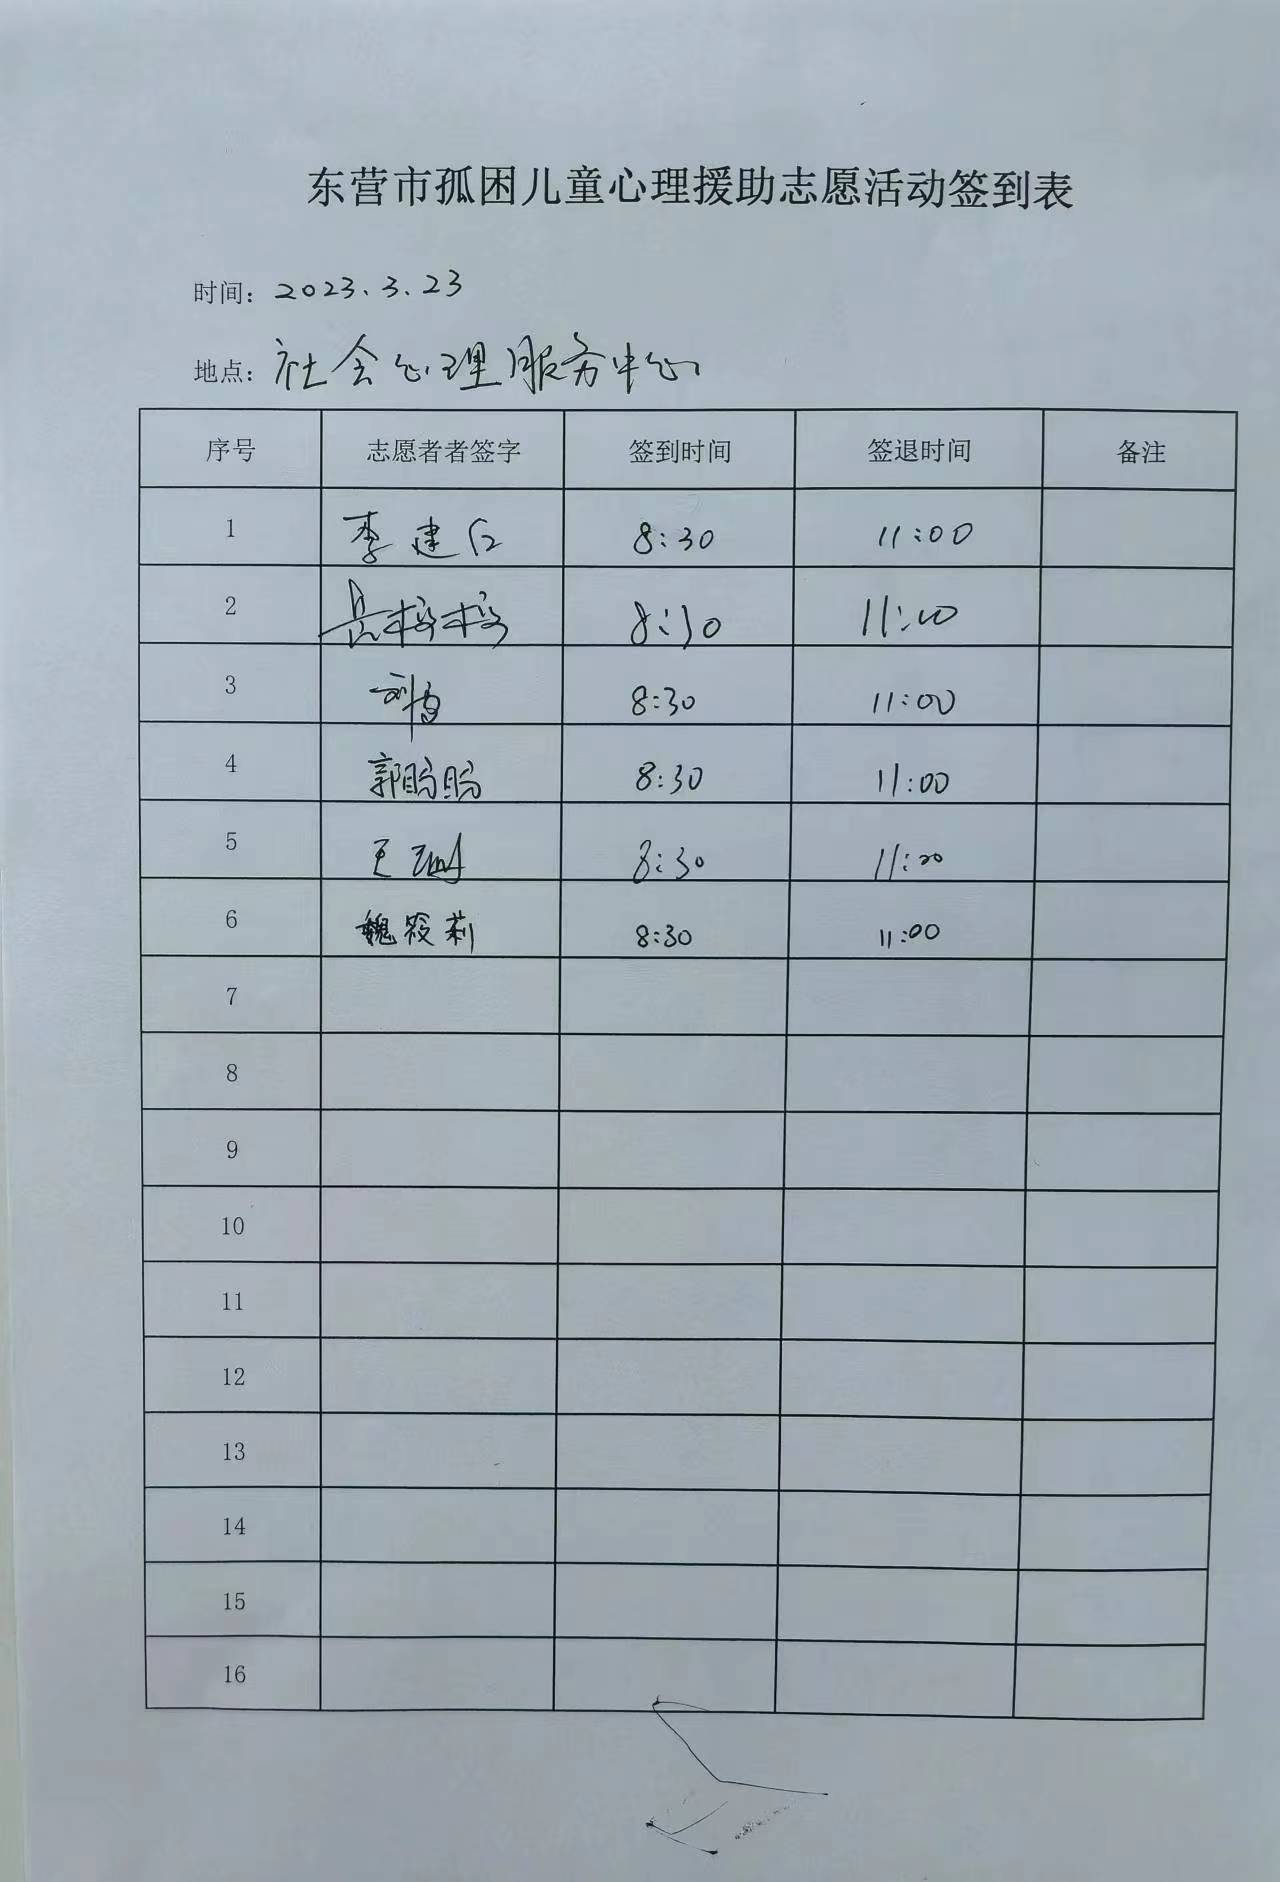 东营市孤困儿童心理援助志愿活动签到表
时间：2023.3.23
地点：社会心理服务中心
序号 志愿者者签字 签到时间 签退时间 备注
1 李建 8:30 11:00
2 8:30 11:00
3 刘 8:30 11:00
4 郭盼盼 8:30 11:00
5 王珊 8:30 11:00
6 魏筱莉 8:30 11:00
7
8
9
10
11
12
13
14
15
16